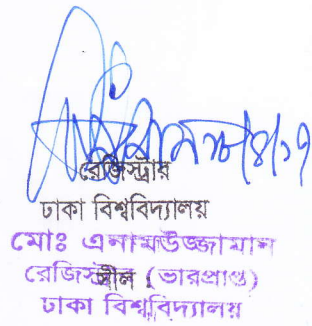 রেজিস্ট্রার
ঢাকা বিশ্ববিদ্যালয়
মোঃ এনামউজ্জামান
রেজিস্ট্রার (ভারপ্রাপ্ত)
সীল :
ঢাকা বিশ্ববিদ্যালয়